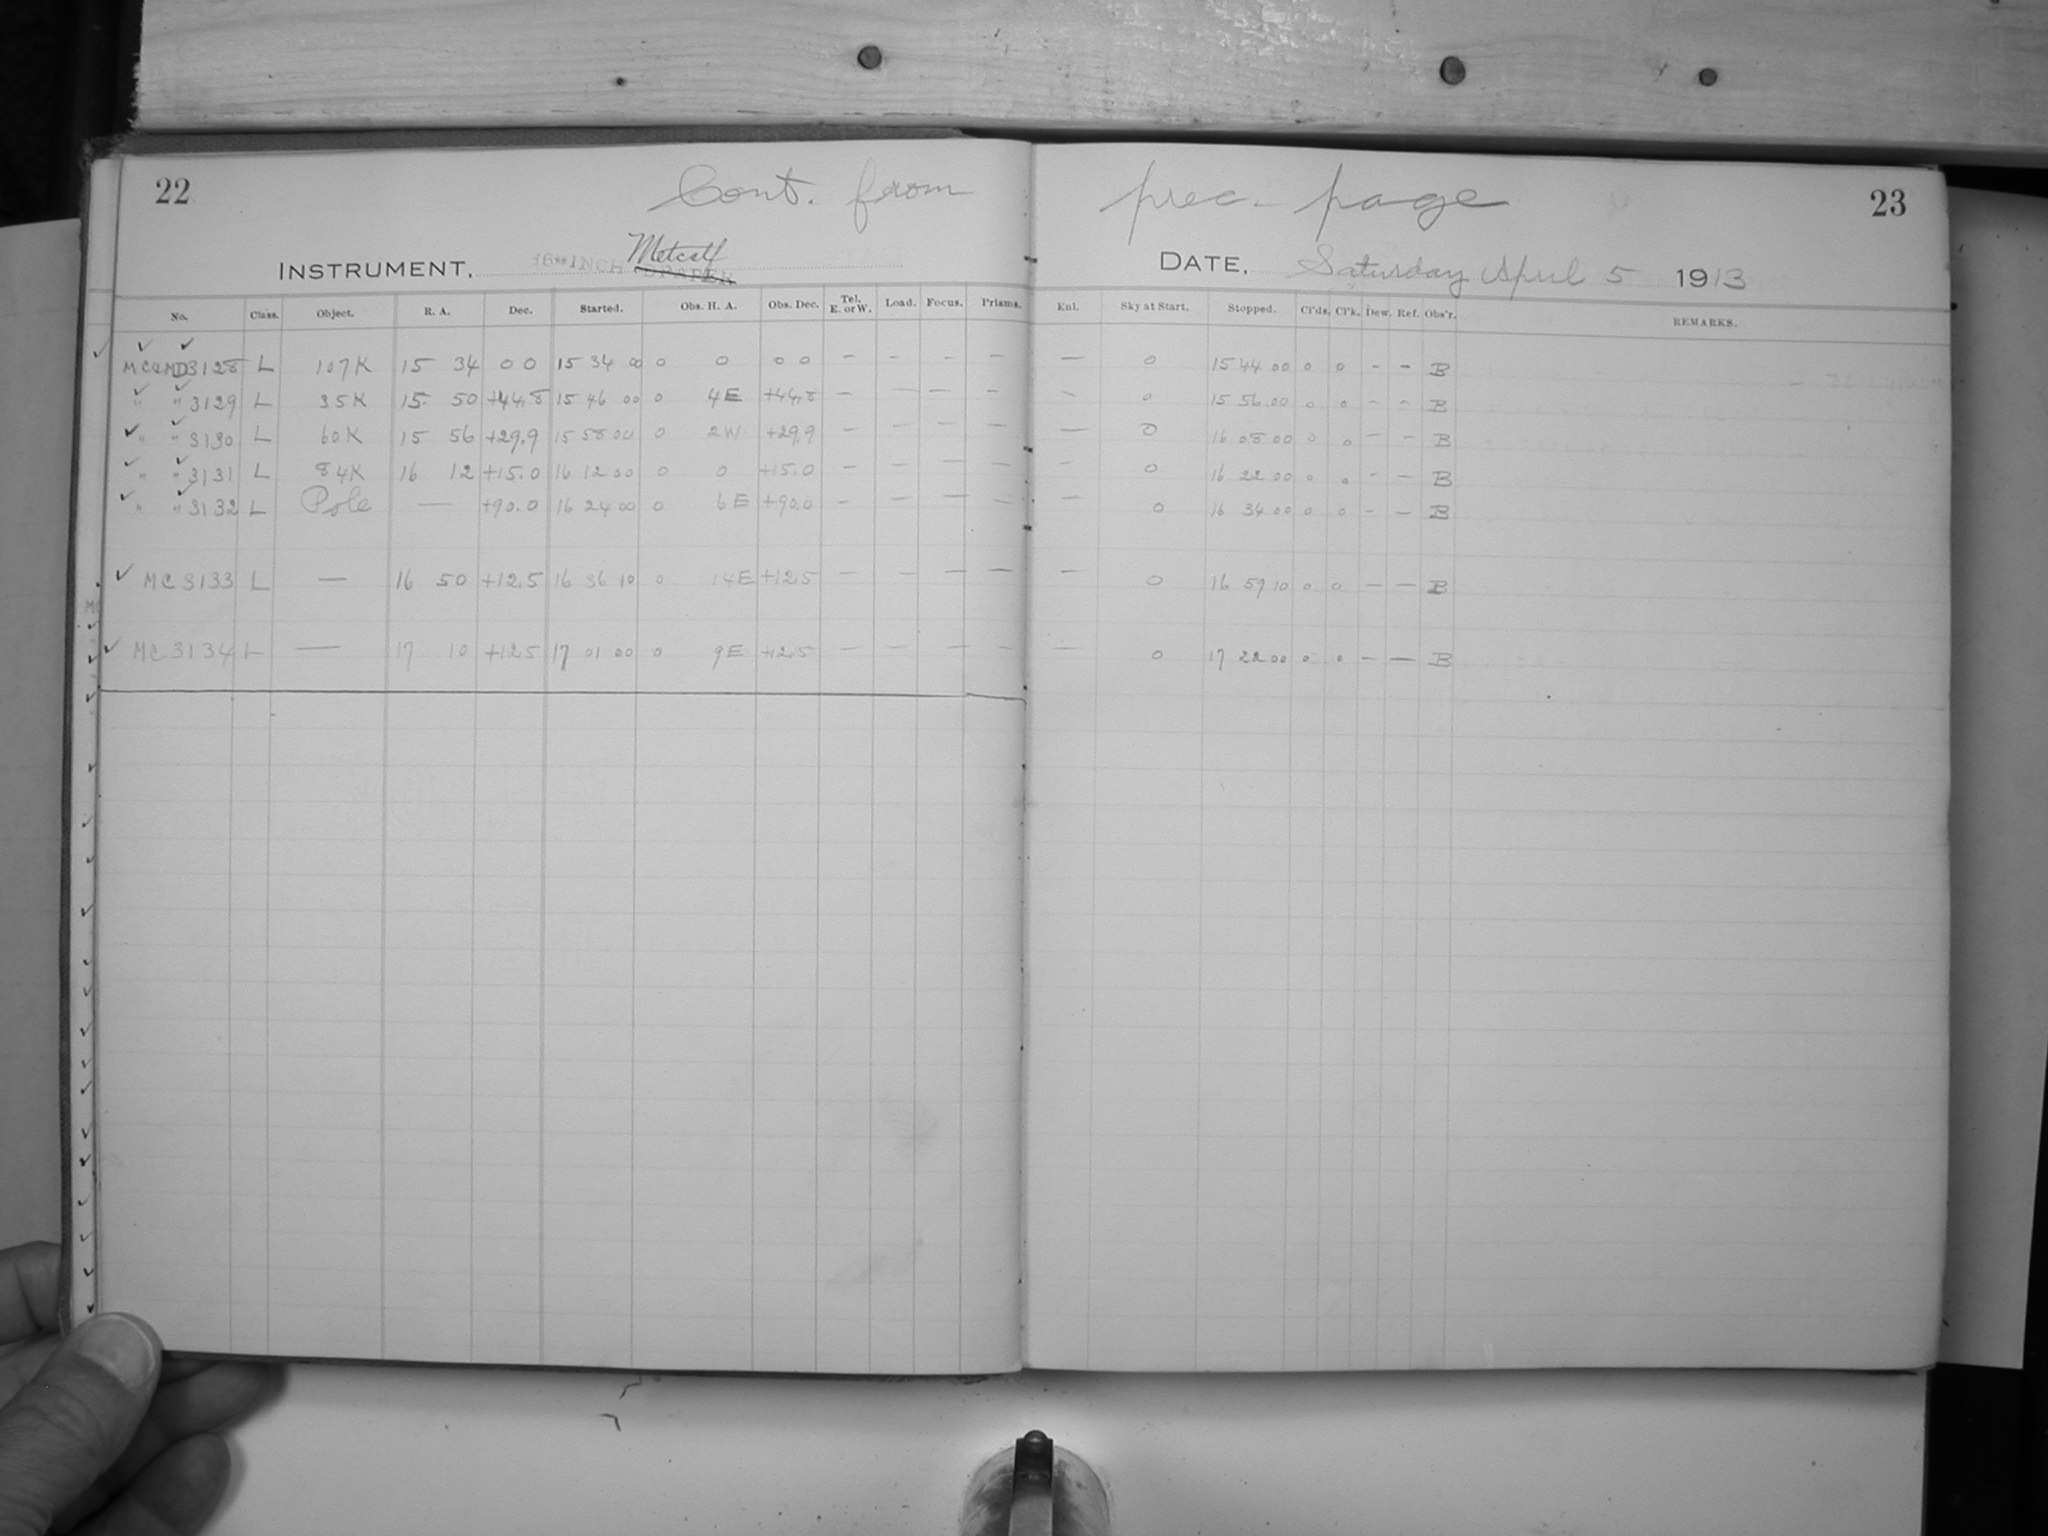 22 Cont. from prec. page 23
INSTRUMENT, 16 INCH DRAPER Metcalf DATE, Saturday April 5 1913
No. Class. Object. R. A. Dec. Started. Obs. H. A. Obs. Dec. Tel. E. or W. Load. Focus. Prisms. Enl. Sky at Start. Stopped. Cl'ds. Cl'k. Dew. Ref. Obs'r. REMARKS.
MC&MD3128 L 107K 15 34 0 0 15 34 00 0 0 0 0 - - - - - 0 15 44 00 0 0 - - B
" " 3129 L 35K 15 50 +44.8 15 46 00 0 4E +44.8 - - - - - 0 15 56.00 0 0 - - B
" " 3130 L 60K 15 56 +29.9 15 58 00 0 2W. +29.9 - - - - - 0 16 08.00 0 0 - - B
" " 3131 L 84K 16 12 +15.0 16 12 00 0 0 +15.0 - - - - - 0 16 22 00 0 0 - - B
" " 3132 L Pole - +90.0 16 24 00 0 6E +90.0 - - - - - 0 16 34 00 0 0 - - B
MC 3133 L - 16 50 +12.5 16 36 10 0 14E +12.5 - - - - - 0 16 57 10 0 0 - - B
MC 3134 L - 17 10 +12.5 17 01 00 0 9E +12.5 - - - - - 0 17 22 00 0 0 - - B